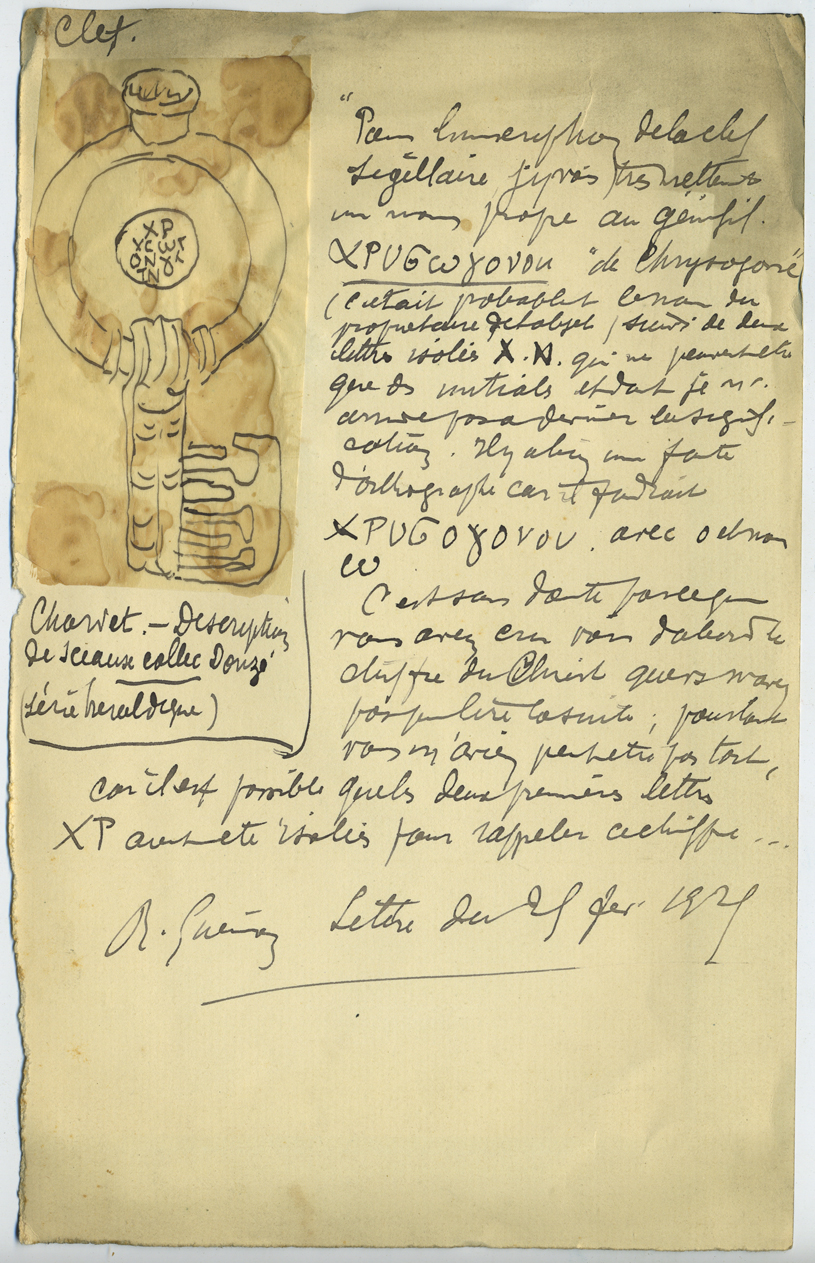 Clef.
"Pour l'inscription de la clef
sigillaire, j'y vois très nettement
un nom propre au génitif.
XPUGωγονου "de Chrysogone"
(c'était probablt le nom du
propriétaire de l'objet) suivi de deux
lettres isolées X.N. qui ne peuvent être
que des initiales et dont je n'
arrive pas a deviner la signifi-
cation. Il y a bien une faute
d'orthographe car il faudrait
XPUGOγονου. avec o et non
ω
C'est sans doute parce que
vous avez cru voir d'abord le
chiffre du Christ que vous n'avez
pas pu lire la suite ; pourtant
vous n'aviez peut être pas tort,
car il est possible que les deux premières lettres
XP aient été isolées pour rappeler ce chiffre ...
R. Guénon Lettre du 25 fév. 1925
XP
Charvet. – Description
de sceaux collec Donzé
(série héraldique)